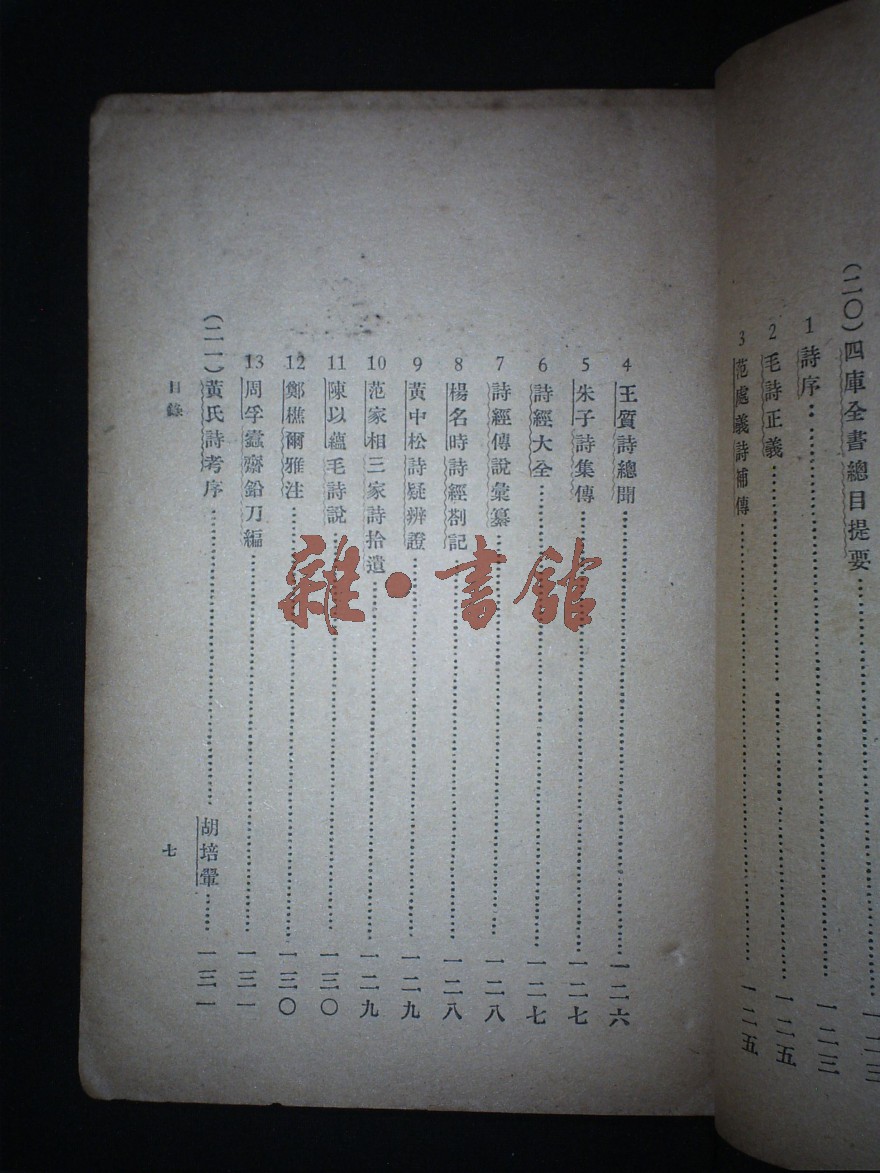 (二〇)四庫全書總目提要……一二三
1 詩序……一二三
2 毛詩正義……一二五
3 范處義詩補傳……一二五
4 王質詩總聞……一二六
5 朱子詩集傳……一二七
6 詩經大全……一二七
7 詩經傳說彙纂……一二八
8 楊名時詩經劄記……一二八
9 黃中松詩疑辨證……一二九
10 范家相三家詩拾遺……一二九
11 陳以蘊毛詩說……一三〇
12 鄭樵爾雅注……一三〇
13 周孚蠹齋鉛刀編……一三一
(二一)黃氏詩考序……胡培翬……一三一
目錄
七
雜·書館